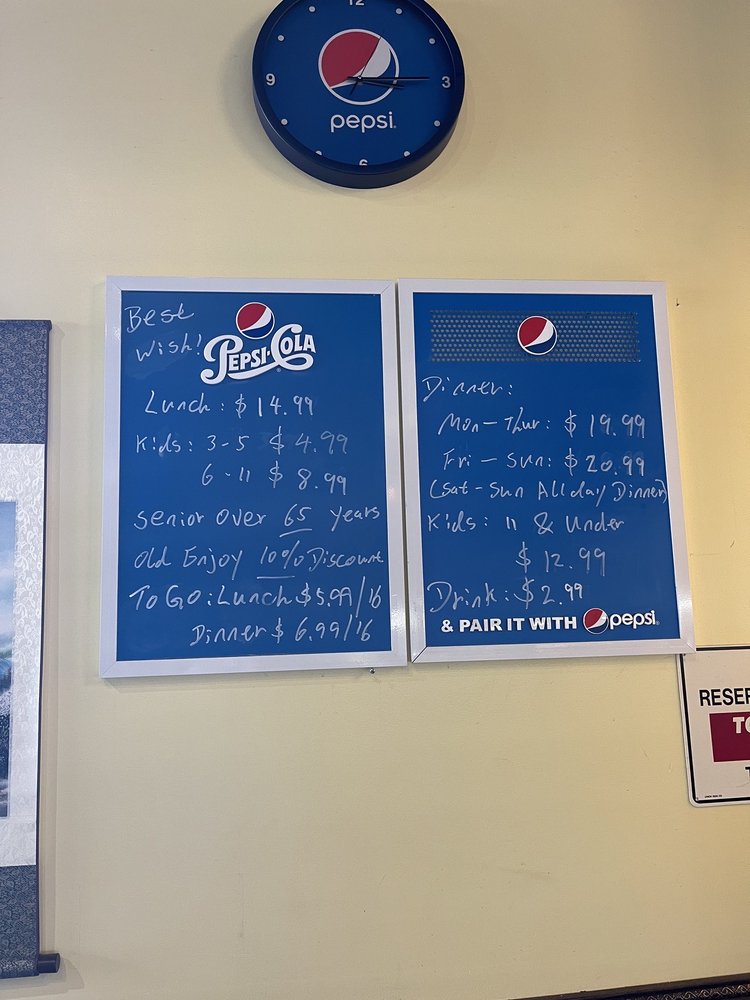 12
9
3
pepsi
6
Best
Wish!
PEPSI-COLA
Lunch: $14.99
Kids: 3-5 $4.99
6-11 $8.99
Senior Over 65 Years
Old Enjoy 10% Discount
To Go: Lunch $5.99/16
Dinner $6.99/16
Dinner:
Mon-Thur: $19.99
Fri-Sun: $20.99
(Sat-Sun All day Dinner)
Kids: 11 & Under
$12.99
Drink: $2.99
& PAIR IT WITH pepsi
RESER
TO
T